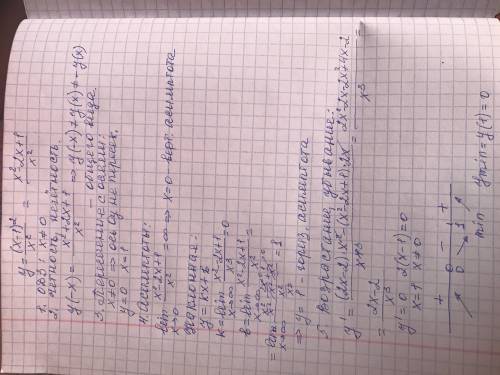 y = (x-1)² / x² = x²-2x+1 / x²
1. ОДЗ: x≠0
2. Четность, нечётность
y(-x) = x²+2x+1 / x² ⇒ y(-x)≠y(x)≠-y(x)
- общего вида.
3. Пересечение с осями:
x=0 ⇒ ось Oy не пересек.
y=0 x=1
4. Асимптоты:
lim x→0 x²-2x+1 / x² = ∞ ⇒ x=0 - верт. асимптота
наклонная:
y=kx+b
k = lim x→∞ x²-2x+1 / x³ = 0
b = lim x→∞ x²-2x+1 / x² =
= lim x→∞ = 1
⇒ y=1 - гориз. асимптота
5. Возрастание, убывание:
y' = (2x-2)·x²-(x²-2x+1)·2x / x⁴ = 2x²-2x-2x²+4x-2 / x³ =
= 2x-2 / x³
y'=0 2(x-1)=0
x=1 x≠0
+ - +
0 1
min ymin=y(1)=0